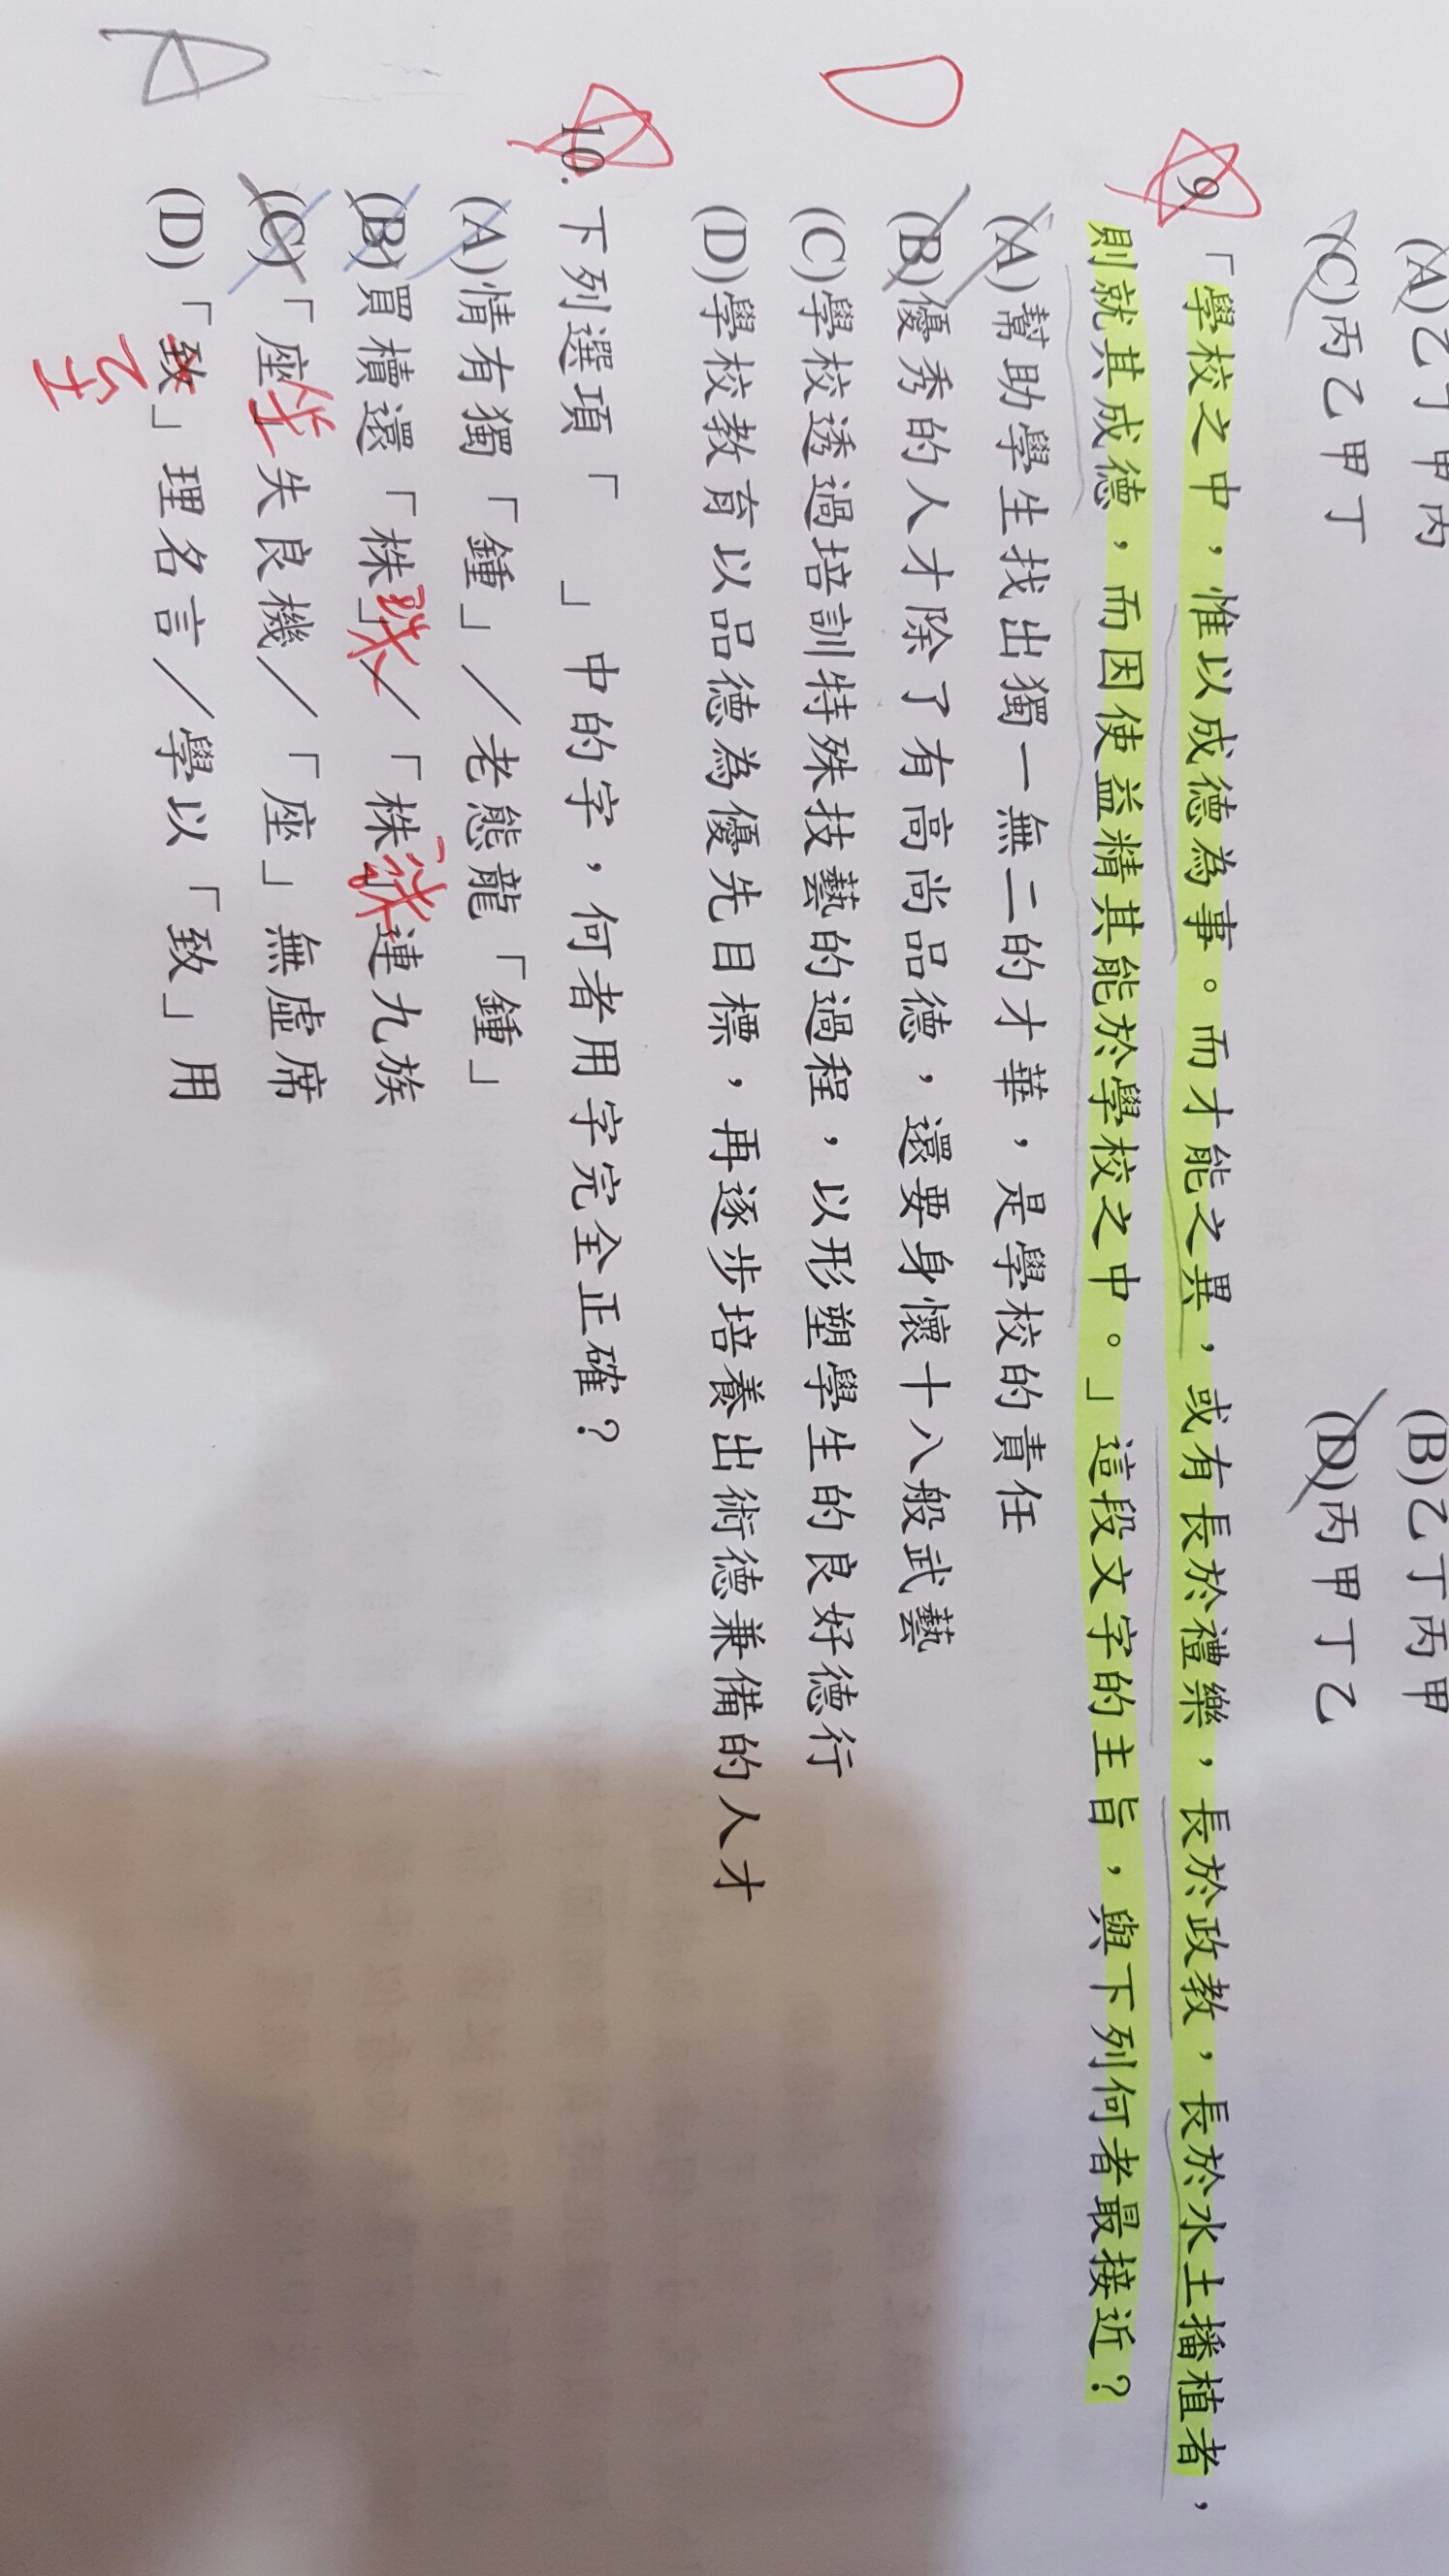 (A)乙丁甲丙 (B)乙丁丙甲
(C)丙乙甲丁 (D)丙甲丁乙
9.「學校之中，惟以成德為事。而才能之異，或有長於禮樂，長於政教，長於水土播植者，
則就其成德，而因使益精其能於學校之中。」這段文字的主旨，與下列何者最接近？
(A)幫助學生找出獨一無二的才華，是學校的責任
(B)優秀的人才除了有高尚品德，還要身懷十八般武藝
(C)學校透過培訓特殊技藝的過程，以形塑學生的良好德行
D
(D)學校教育以品德為優先目標，再逐步培養出術德兼備的人才
10.下列選項「 」中的字，何者用字完全正確？
(A)情有獨「鍾」／老態龍「鍾」
(B)買櫝還「株」／「株」連九族
珠 誅
(C)「座」失良機／「座」無虛席
坐
A
(D)「致」理名言／學以「致」用
至